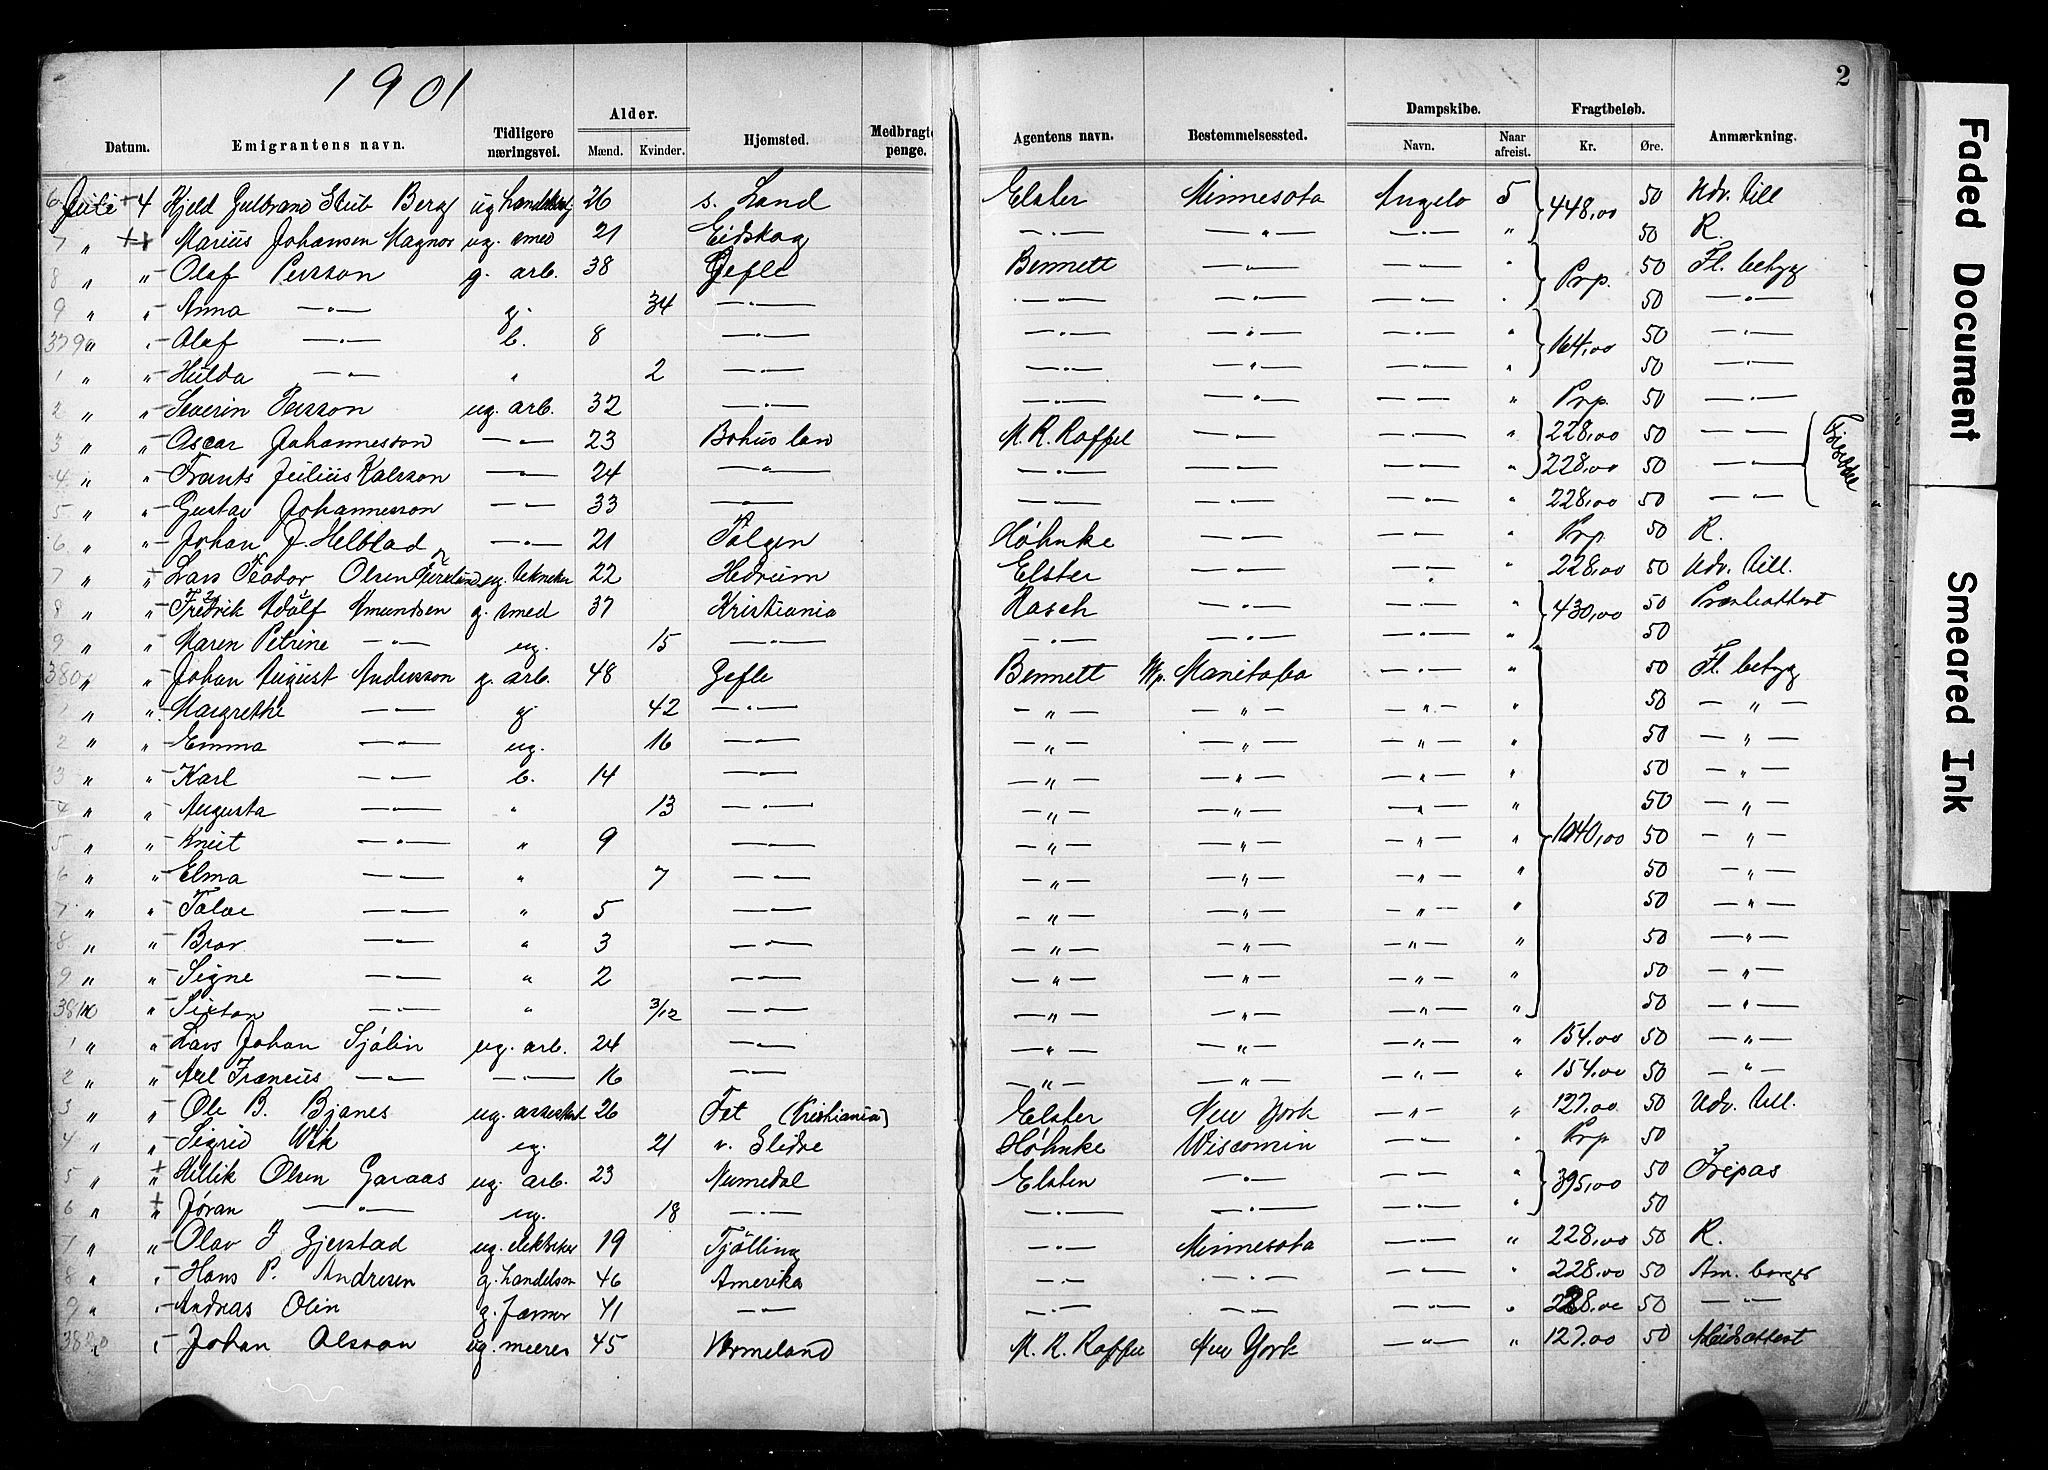 1901
2
Datum. Emigrantens navn. Tidligere næringsvei. Alder. Mænd. Kvinder. Hjemsted. Medbragte penge. Agentens navn. Bestemmelsessted. Dampskibe. Navn. Naar afreist. Fragtbeløb. Kr. Øre. Anmærkning.
6 Juli + 4 Kjeld Gulbrand Stub Berg ug. 26 s. Land Elster Minnesota Angelo 5 448,00 50 Udv. Till
7 " ++ Marius Johansen Magnor ug. smed 21 Eidskog —"— —"— —"— " 50 R.
8 " " Olaf Persson g. arb. 38 Gefle Bennett —"— —"— " Prp. 50 Fl. betyg
9 " " Anna —"— g. 34 —"— —"— —"— —"— " 50 —"—
379 " " Olaf —"— b. 8 —"— —"— —"— —"— " 164,00 50 —"—
1 " " Hulda —"— " 2 —"— —"— —"— —"— " 50 —"—
2 " " Severin Persson ug. arb. 32 —"— —"— —"— —"— " Prp. 50 —"—
3 " " Oscar Johannesson —"— 23 Bohus lan M. R. Raffel —"— —"— " 228,00 50 —"—
4 " " Frants Julius Karlsson —"— 24 —"— —"— —"— —"— " 228,00 50 —"—
5 " " Gustav Johannesson —"— 33 —"— —"— —"— —"— " 228,00 50 —"—
6 " " Johan J. Helblad —"— 21 Tolgen Høhnke —"— —"— " Prp 50 R.
7 " + Lars Teodor Olsen ug. tekniker 22 Hedrum Elster —"— —"— " 228,00 50 Udv. Till.
8 " " Fredrik Adolf Amundsen g. smed 37 Kristiania Rasch —"— —"— " 430,00 50
9 " " Maren Petrine —"— ug. 15 —"— —"— —"— —"— " 50
380 " " Johan August Andersson g. arb. 48 Gefle Bennett Wp. Manitoba —"— " 50 Fl. betyg
1 " " Margrethe —"— g 42 —"— —"— —"— —"— " 50 —"—
2 " " Emma —"— ug. 16 —"— —"— —"— —"— " 50 —"—
3 " " Karl —"— b. 14 —"— —"— —"— —"— " 50 —"—
4 " " Augusta —"— " 13 —"— —"— —"— —"— " 50 —"—
5 " " Knut —"— " 9 —"— —"— —"— —"— " 1040,00 50 —"—
6 " " Elma —"— " 7 —"— —"— —"— —"— " 50 —"—
7 " " —"— " 5 —"— —"— —"— —"— " 50 —"—
8 " " Bror —"— " 3 —"— —"— —"— —"— " 50 —"—
9 " " Signe —"— " 2 —"— —"— —"— —"— " 50 —"—
381 " " Sixten —"— " 3/12 —"— —"— —"— —"— " 50 —"—
1 " " Lars Johan Sjölin ug. arb. 24 —"— —"— —"— —"— " 154.00 50 —"—
2 " " Axel Francius —"— —"— 16 —"— —"— —"— —"— " 154.00 50 —"—
3 " " Ole B. Bjanes ug. 26 Fet (Kristiania) Elster New York —"— " 127,00 50 Udv. Till.
4 " " Sigrid Wik ug. 21 v. Slidre Høhnke Wisconsin —"— " Prp 50
5 " + Hellik Olsen Garaas ug. arb. 23 Numedal Elster —"— —"— " 395,00 50 Fripas
6 " + Jøran —"— ug. 18 —"— —"— —"— —"— " 50
7 " " Olav J. Gjerstad ug. elektriker 19 Tjølling —"— Minnesota —"— " 228,00 50 R.
8 " " Hans P. Andresen g. handelsm 46 Amerika —"— —"— —"— " 228,00 50 Am. borger
9 " " Andreas Olin g. farmer 41 —"— —"— —"— —"— " 228,00 50 —"—
3820 " " Johan Olsson ug. murer 45 Vermeland M. R. Raffel New York —"— " 127.00 50
Faded Document
Smeared Ink